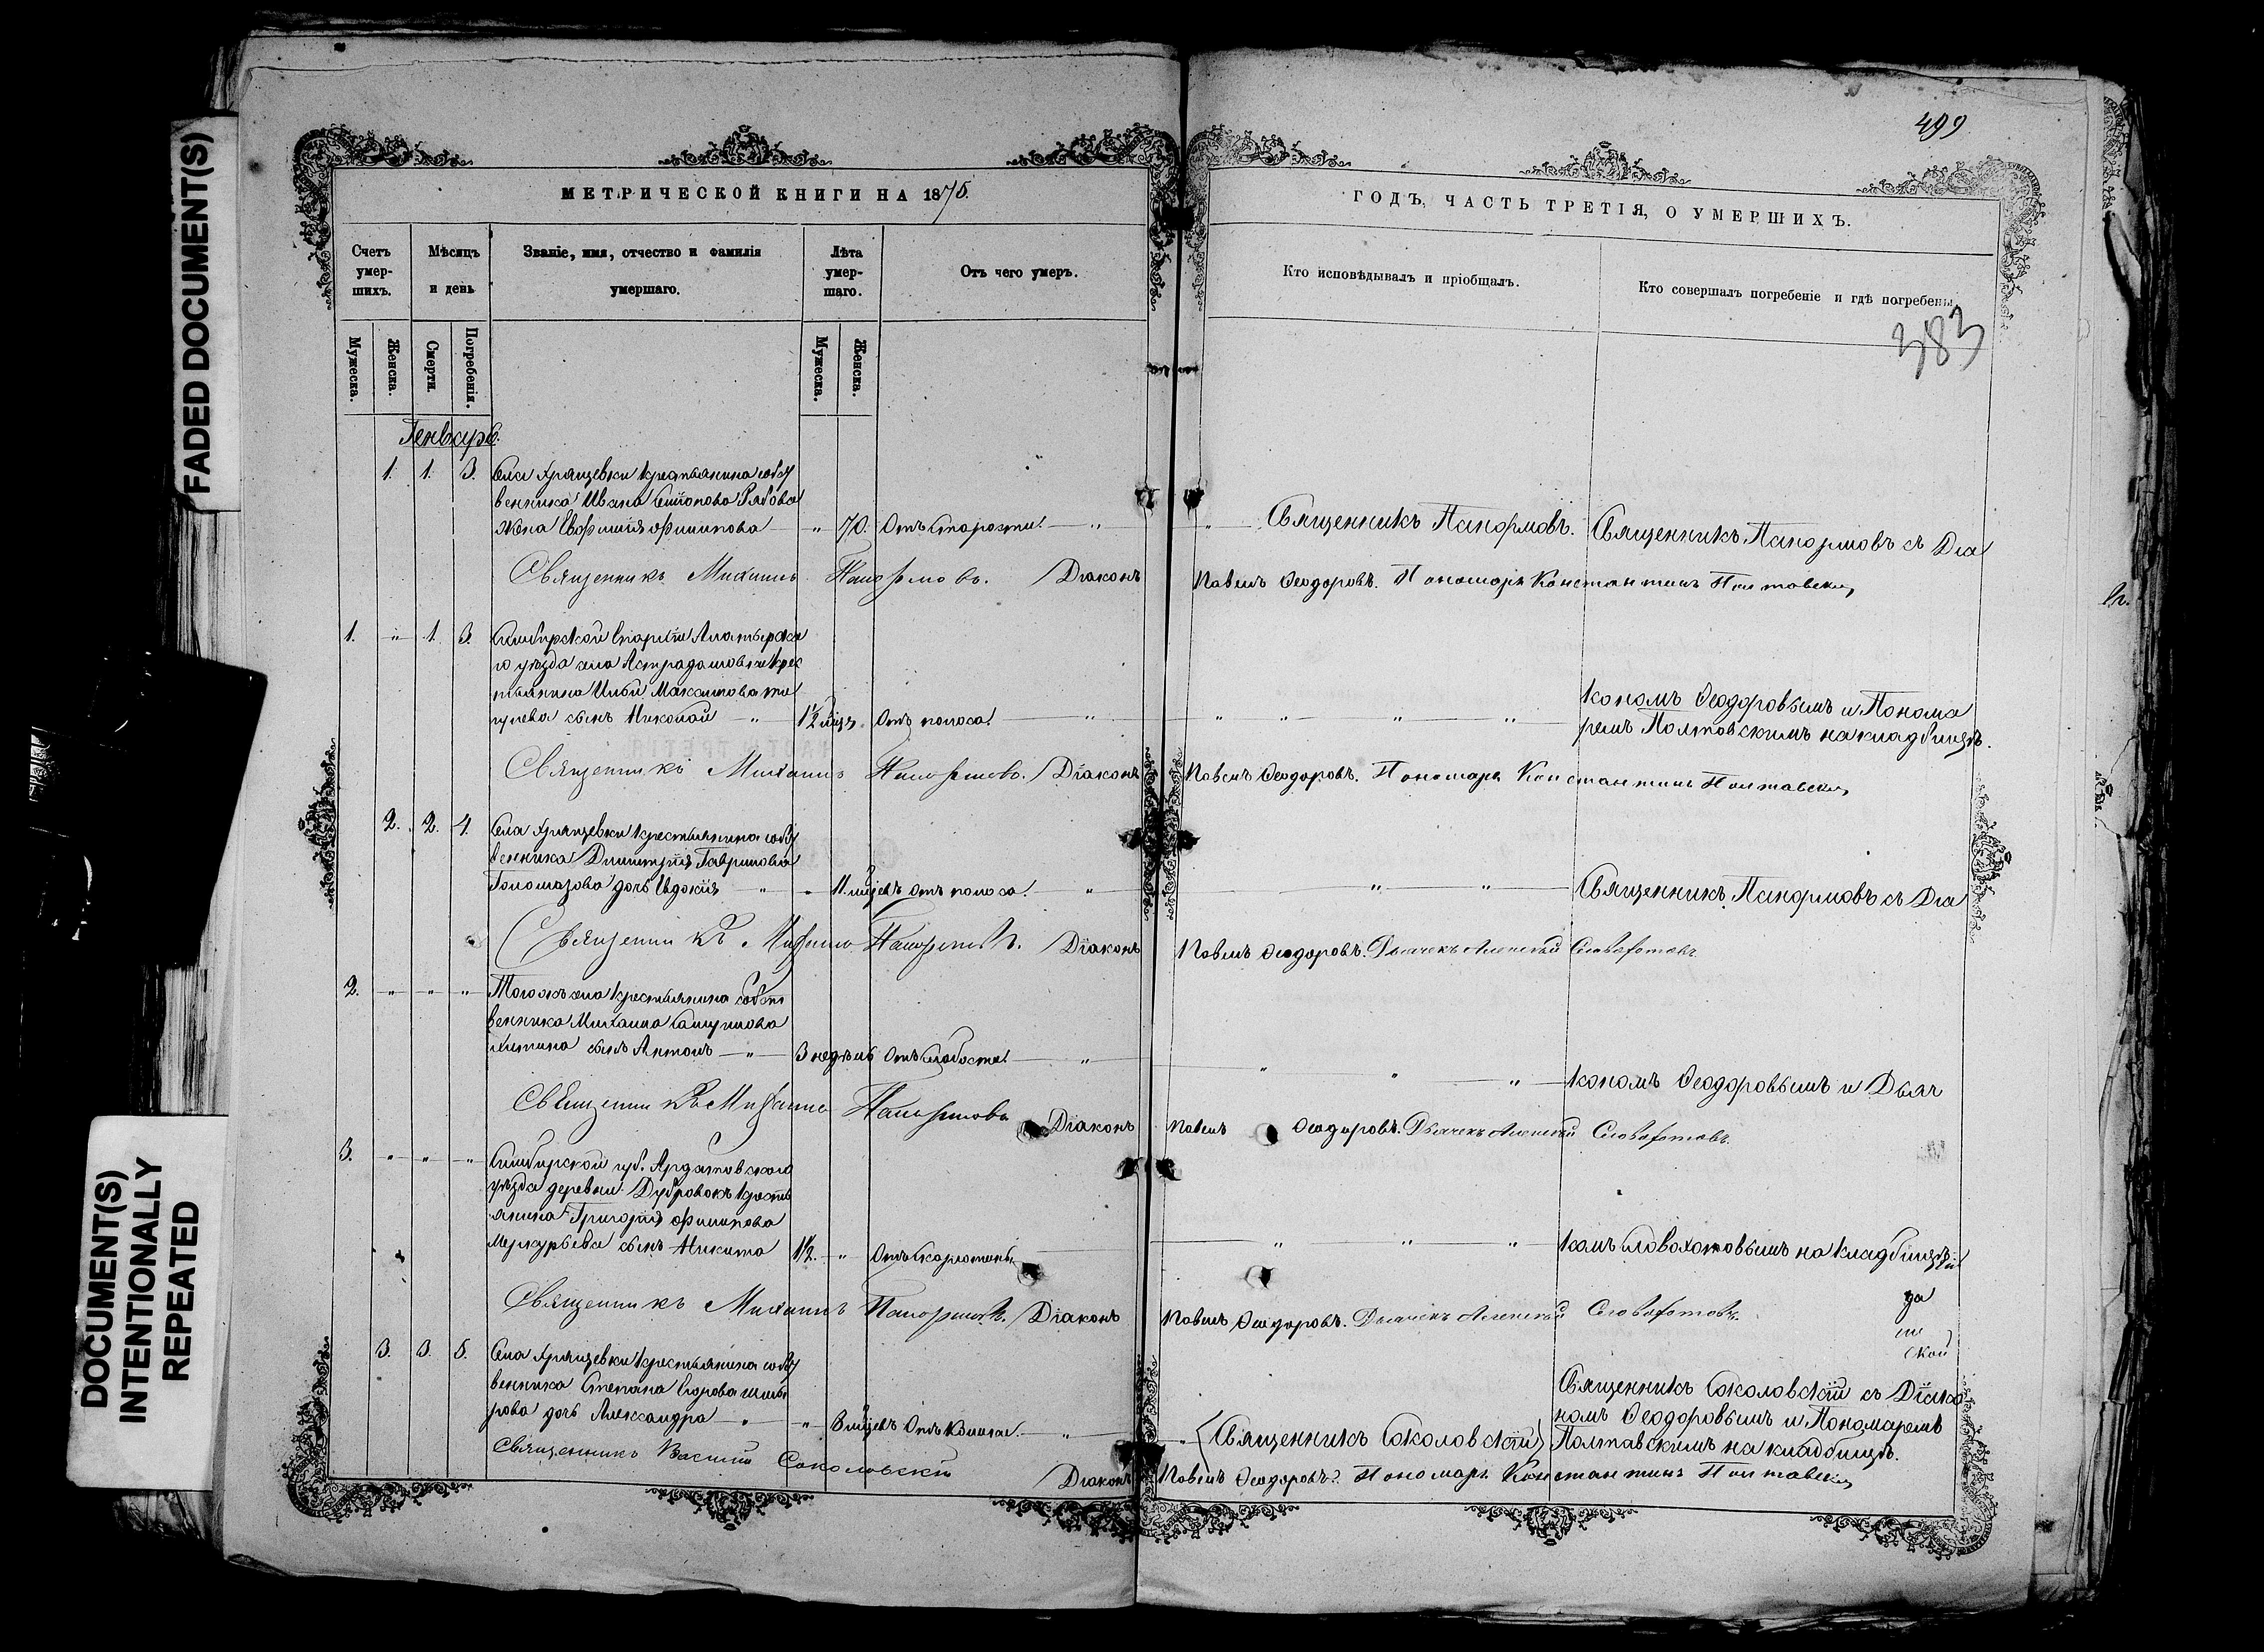 FADED DOCUMENT(S)
DOCUMENT(S)
INTENTIONALLY
REPEATED
499
383
МЕТРИЧЕСКОЙ КНИГИ НА 1875.
ГОДЪ, ЧАСТЬ ТРЕТІЯ, О УМЕРШИХЪ.
Счетъ умер-шихъ.
Мѣсяцъ и день
Званіе, имя, отчество и фамилія умершаго.
Лѣта умер-шаго.
Отъ чего умеръ.
Кто исповѣдывалъ и пріобщалъ.
Кто совершалъ погребеніе и гдѣ погребены.
Мужеска. Женска. Смерти. Погребенія. Мужеска. Женска.
Генварь.
1. 1. 3. Села Хрящевки крестьянина собст
венника Ивана Рябова
жена Евфимія Филипова — " 70. Отъ старости. — "
" — Священникъ Панормовъ. Священникъ Панормовъ съ Діа
Священникъ Михаилъ Панормовъ. Діаконъ Павелъ Ѳеодоровъ. Пономарь Константинъ Полтавскій
1. " 1. 3. Симбирской Епархіи Алатырска
го уѣзда села Астрадамовки крес
тьянина Ильи Максимова
сынъ Николай — " 1½ мѣсц. Отъ поноса. — "
кономъ Ѳеодоровымъ и Понома
ремъ Полтовскимъ на кладбищѣ.
Священникъ Михаилъ Панормовъ. Діаконъ Павелъ Ѳеодоровъ. Пономарь Константинъ Полтавскій
2. 2. 4. Села Хрящевки крестьянина собст
венника Димитрія Гаврилова
дочь Евдокія — " 11 мѣсцевъ Отъ поноса. — "
Священникъ Панормовъ съ Діа
Священникъ Михаилъ Панормовъ. Діаконъ Павелъ Ѳеодоровъ. Дьячекъ Алексѣй Словохотовъ.
2. " " " Тогожъ села крестьянина собст
венника Михаила
сынъ Антонъ — " — 3 недѣль Отъ слабости. — "
кономъ Ѳеодоровымъ и Дьяч
Священникъ Михаилъ Панормовъ Діаконъ Павелъ Ѳеодоровъ. Дьячекъ Алексѣй Словохотовъ.
3. " " " Симбирской губ. Ардатовскаго
уѣзда деревни Дубровокъ кресть
янина Григорія Филипова
Меркурьева сынъ Никита 1½. — " Отъ скарлатины
комъ Словохотовымъ на кладбищѣ.
Священникъ Михаилъ Панормовъ. Діаконъ Павелъ Ѳеодоровъ. Дьячекъ Алексѣй Словохотовъ.
3. 3. 5. Села Хрящевки крестьянина собст
венника Степана Егорова
дочь Александра — " 8 мѣсцевъ Отъ кашля. — "
Священникъ Соколовскій
Священникъ Соколовскій съ Діако
номъ Ѳеодоровымъ и Пономаремъ
Полтавскимъ на кладбищѣ.
Священникъ Василій Соколовскій Діаконъ Павелъ Ѳеодоровъ. Пономарь Константинъ Полтавскій